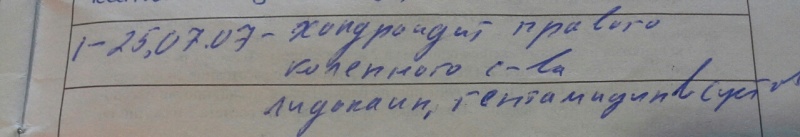 1-25,07.07- хондроидит правого
коленного с-ва
лидокаин, гентамицин в суст